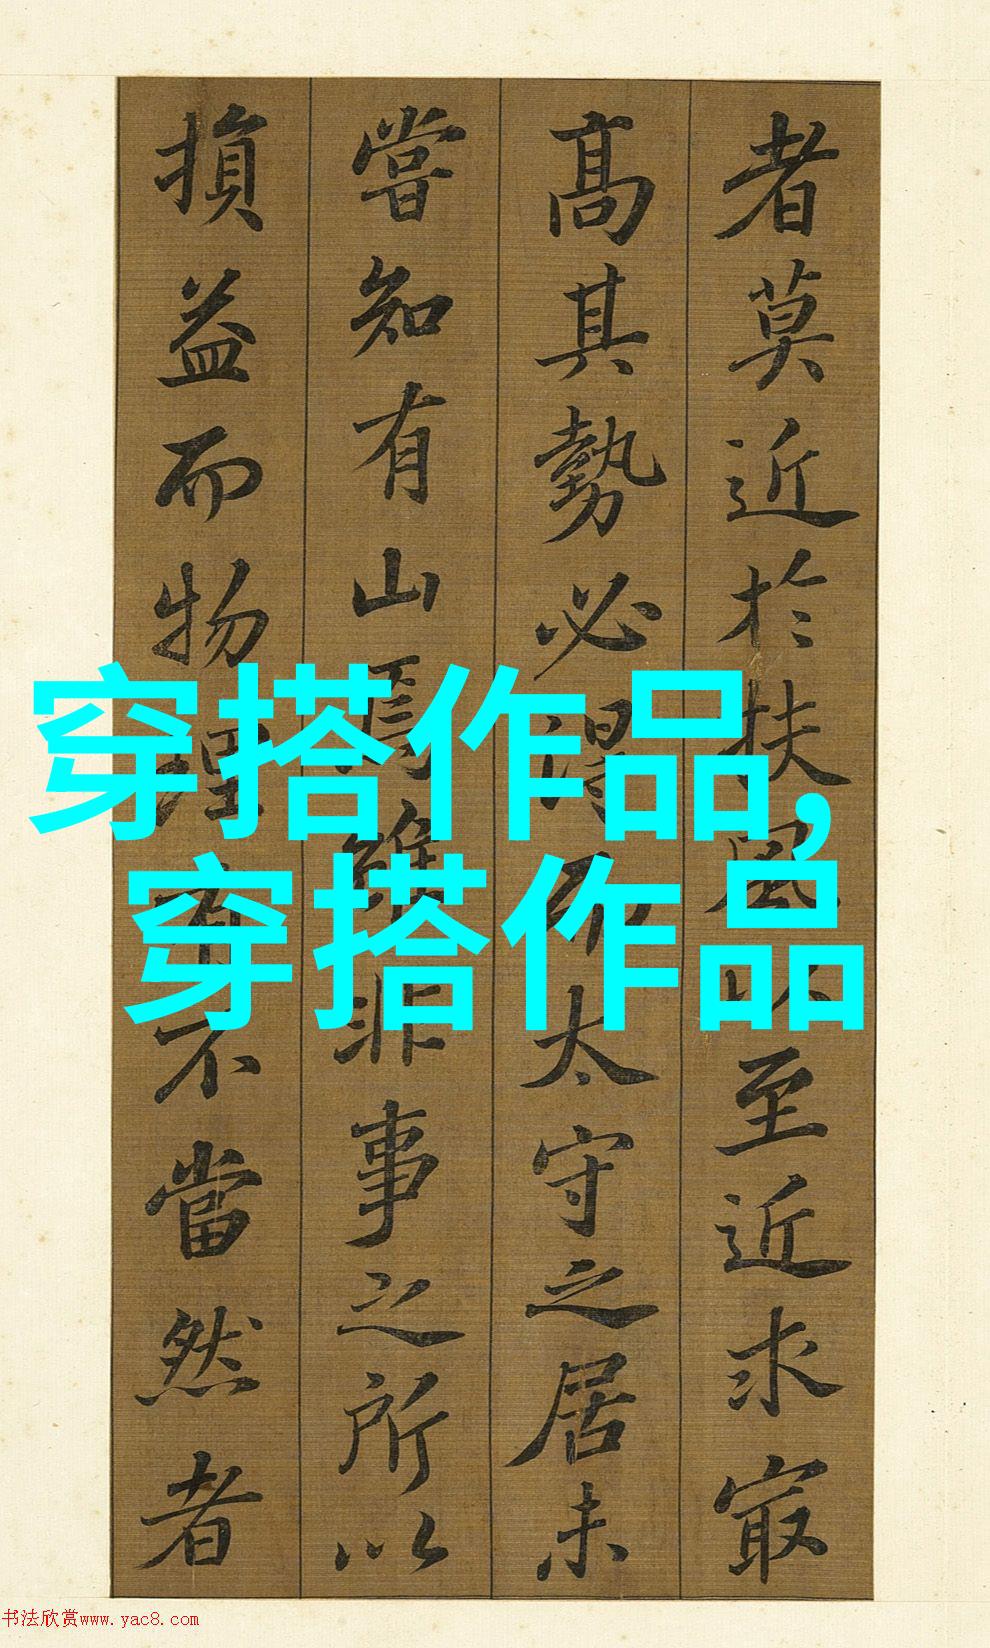 者莫近於扶風以至近求最
高其勢必得而太守之居未
嘗知有山焉雖非事之所以
損益而物理有不當然者
穿搭作品,
穿搭作品
书法欣赏www.yac8.com